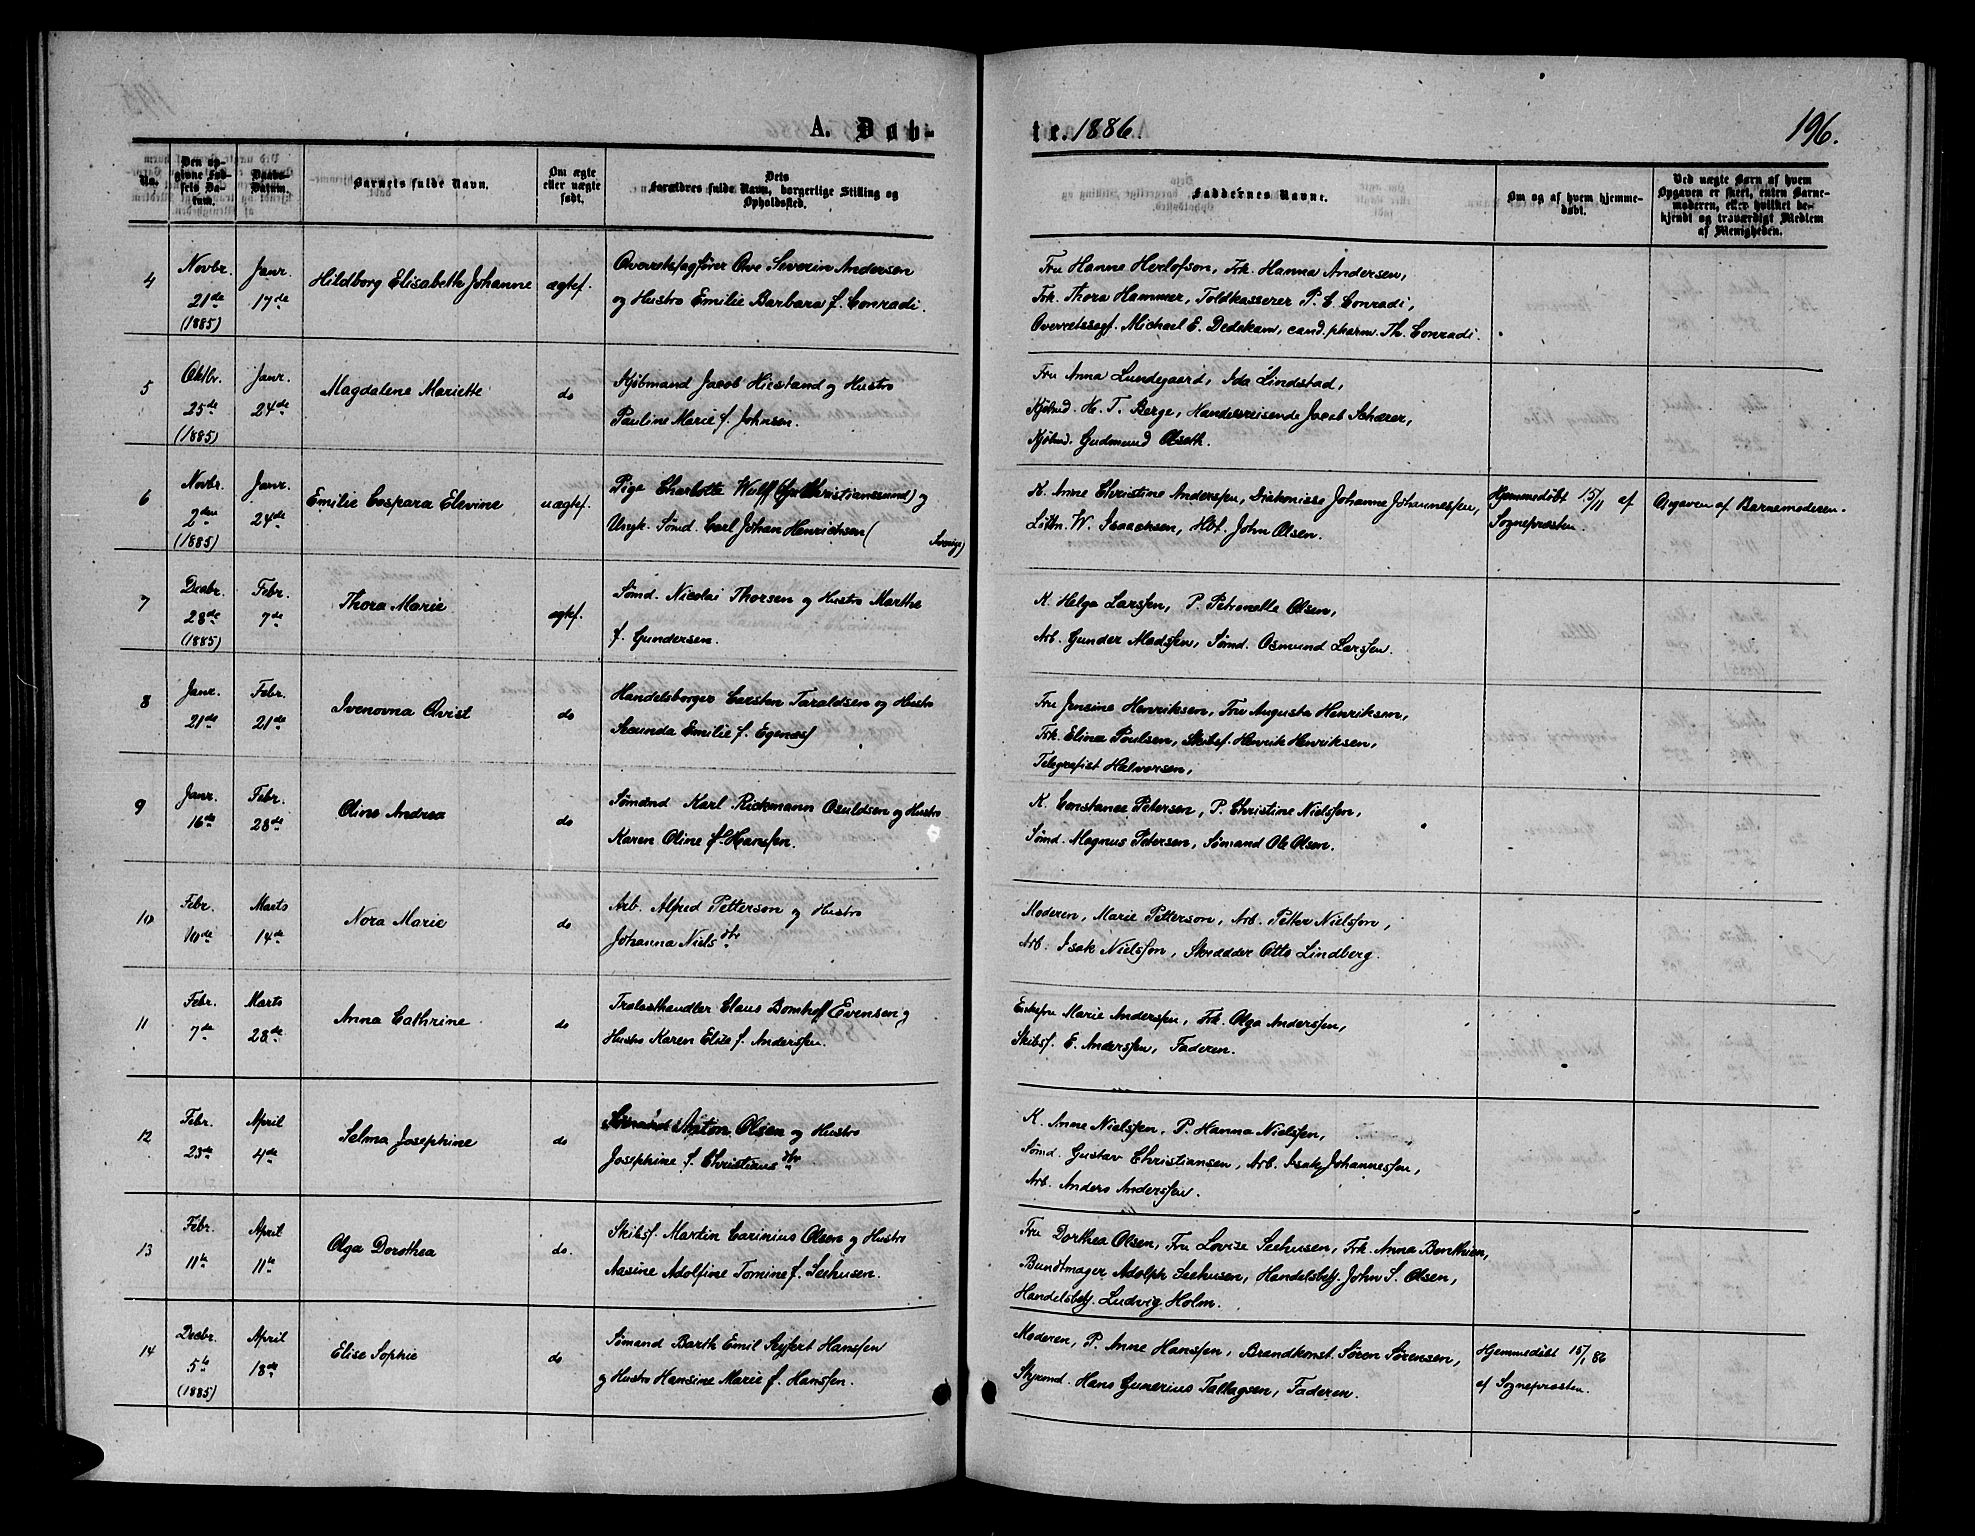 A. Døb-
te. 1886.
196.
No.
Den op-
givne Fød-
sels Da-
tum.
Daabs-
Datum.
Barnets fulde Navn.
Om ægte
eller uægte
født.
Dets
Forældres fulde Navn, borgerlige Stilling og
Opholdssted.
Faddernes Navne.
Om og af hvem hjemme-
døbt.
Ved uægte Børn af hvem
Opgaven er skeet, enten Barne-
moderen, eller hvilket be-
kjendt og troværdigt Medlem
af Menigheden.
4
Novbr.
21de
(1885)
Janr.
17de
Hildborg Elisabeth Johanne
ægtef.
Overretssagfører Ove Severin Andersen
og Hustro Emilie Barbara f. Conradi.
Fru Hanne Herlofson, Frk. Hanna Andersen,
Frk. Thora Hammer, Toldkasserer P. C. Conradi,
Overretssagf. Michael E. Dedekam, cand. pharm. Th. Conradi.
5
Oktbr.
25de
(1885)
Janr.
24de
Magdalene Mariette
do
Kjøbmand Jacob Hiestand og Hustro
Pauline Marie f. Johnsen.
Fru Anna Lundegaard, Ida Lindstad,
Kjøbmd. H. T. Berge, Handelsreisende Jacob Schærer,
Kjøbmd. Gudmund Olseth.
6
Novbr.
2den
(1885)
Janr.
24de
Emilie Caspara Elevine
uægtef.
Pige Charlotte Wulff (fra Christianssund) og
Ungk. Sømd. Carl Johan Henrichsen (Sverige)
K. Anne Christine Anderssen, Diakonisse Johanne Johannessen,
Løitn. W. Isaachsen, Hbf. John Olsen.
Hjemmedøbt 15/11 af
Sognepræsten.
Opgaven af Barnemoderen.
7
Decbr.
28de
(1885)
Febr.
7de
Thora Marie
ægtef.
Sømd. Nicolai Thorsen og Hustro Marthe
f. Gundersen.
K. Helga Larssen, P. Petronelle Olsen,
Arb. Gunder Madssen, Sømd. Osmund Larssen.
8
Janr.
21de
Febr.
21de
Ivenovna Qvist
do
Handelsborger Carsten Taraldsen og Hustro
Secunda Emilie f. Egenæs
Fru Jensine Henriksen, Fru Augusta Henriksen,
Frk. Elina Poulsen, Skibsf. Henrik Henriksen,
Telegrafist Halvorsen,
9
Janr.
16de
Febr.
28de
Oline Andrea
do
Sømand Karl Rickmann Osuldsen og Hustro
Karen Oline f. Hanssen.
K. Constance Petersen, P. Christine Nielssen,
Sømd. Magnus Petersen, Sømand Ole Olsen.
10
Febr.
10de
Marts
14de
Nora Marie
do
Arb. Alfred Petterson og Hustro
Johanna Nielsdtr
Moderen, Marie Petterson, Arb. Petter Nielsson,
Arb. Isak Nielsson, Skrædder Otto Lindberg.
11
Febr.
7de
Marts
28de
Anna Cathrine
do
Trælasthandler Claus Bomhoff Evensen og
Hustro Karen Elise f. Anderssen.
Enkefru Marie Anderssen, Frk. Olga Anderssen,
Skibsf. E. Anderssen, Faderen.
12
Febr.
23de
April
4de
Selma Josephine
do
Anton Olsen og Hustro
Josephine f. Christiansdtr.
K. Anne Nielssen, P. Hanna Nielssen,
Sømd. Gustav Christiansen, Arb. Isak Johannessen,
Arb. Anders Anderssen.
13
Febr.
11te
April
11te
Olga Dorothea
do.
Skibsf. Martin Carinius Olsen og Hustro
Aasine Adolfine Tomine f. Seehusen.
Fru Dorthea Olsen, Fru Lovise Seehusen, Frk. Anna Benthien,
Bundtmager Adolph Seehusen, Handelsbetj. John S. Olsen,
Handelsbetj. Ludvig Holm.
14
Decbr.
5te
(1885)
April
18de
Elise Sophie
do
Sømand Barth Emil Seyfert Hanssen
og Hustro Hansine Marie f. Hanssen.
Moderen, P. Anne Hanssen, Brandkonst. Søren Sørensen,
Styrmd. Hans Gunerius Tallagsen, Faderen.
Hjemmedøbt 15/1 86
af Sognepræsten.